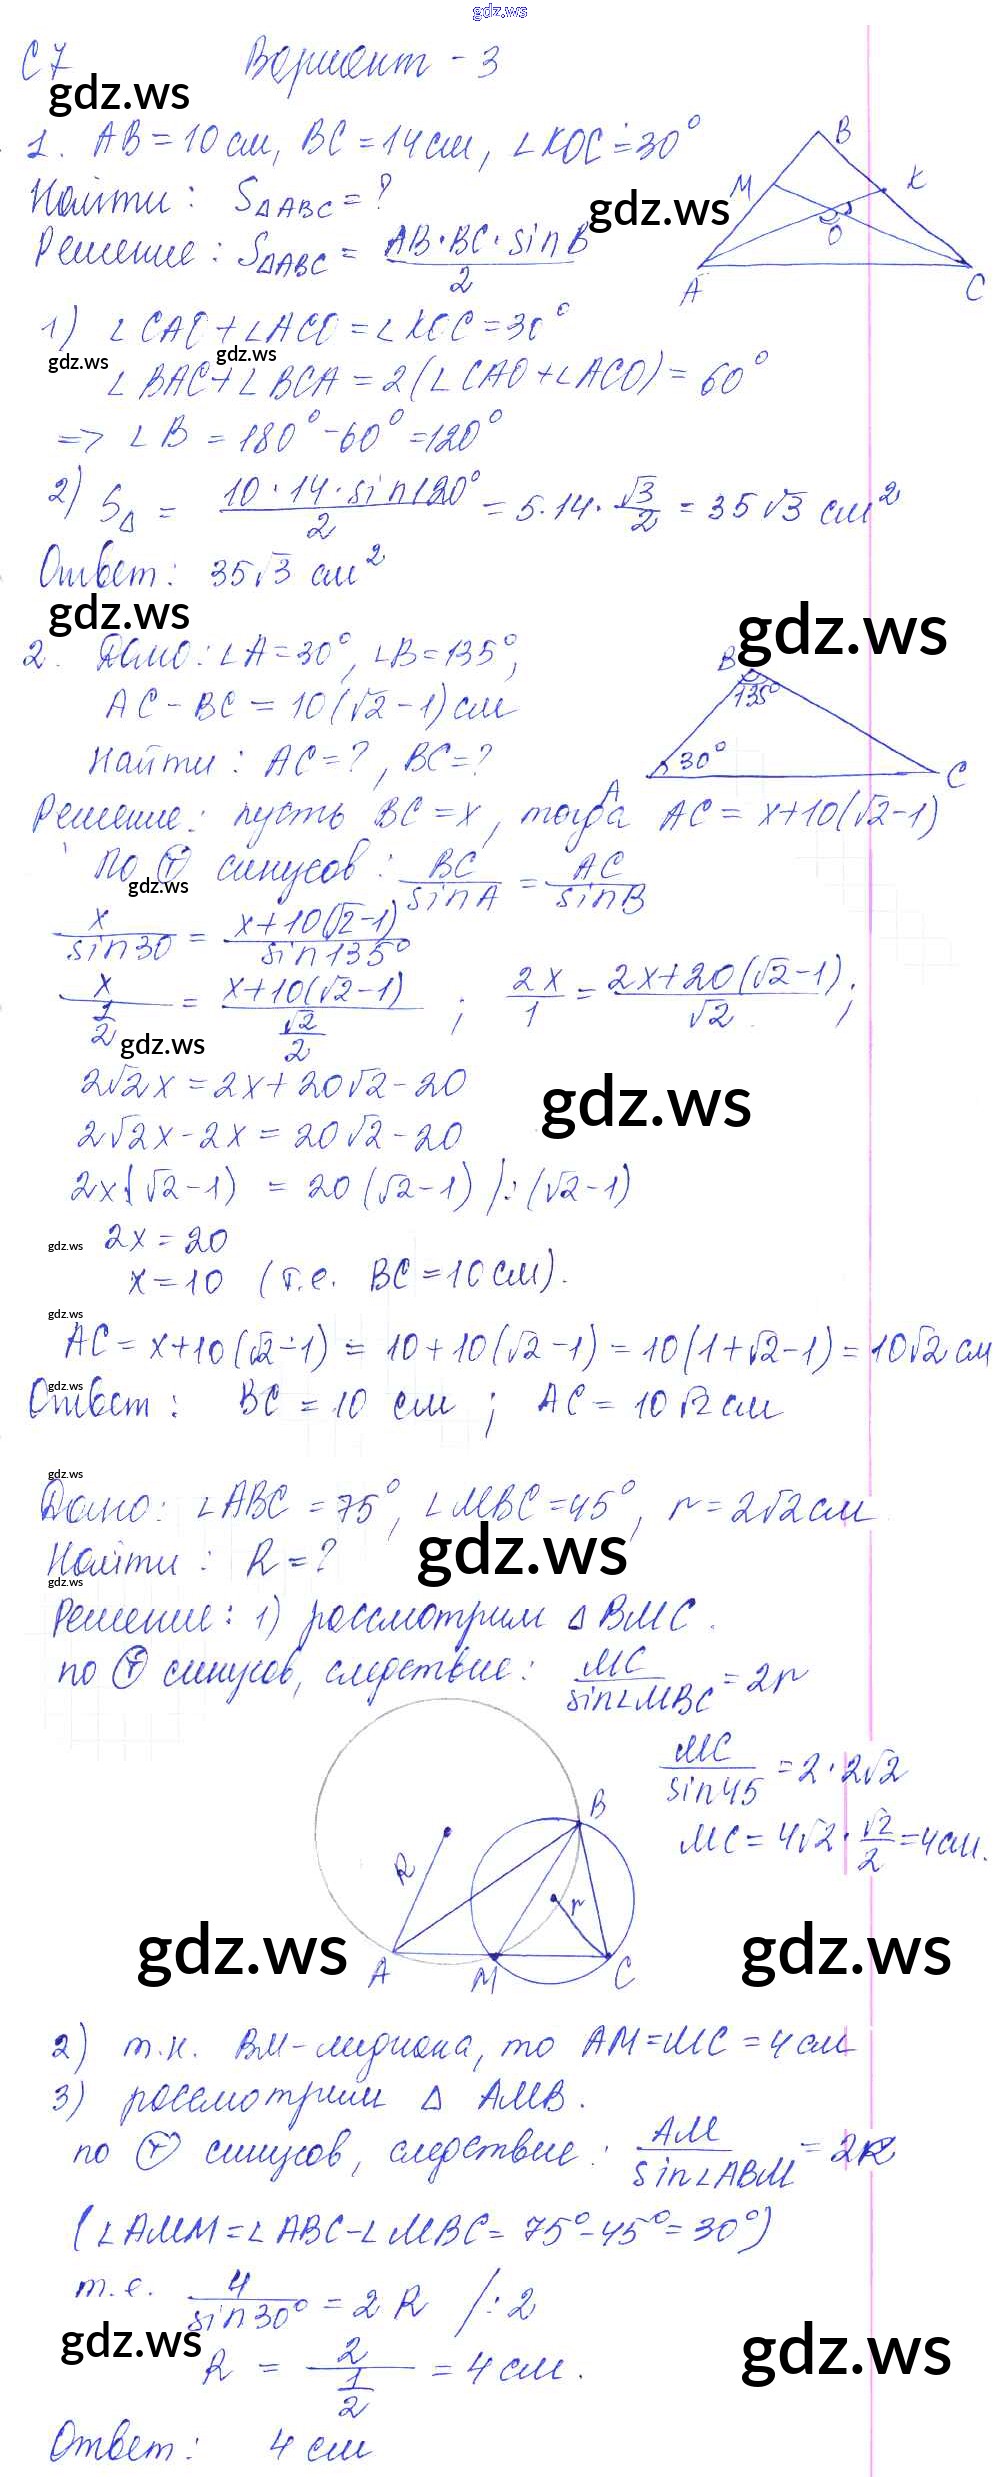 gdz.ws
С7 Вариант - 3
gdz.ws
1. AB = 10 см, BC = 14 см, ∠KOC = 30°
Найти: S△ABC = ?
gdz.ws
Решение: S△ABC = AB·BC·sin B / 2
B
M
K
O
A
C
1) ∠CAO + ∠ACO = ∠KOC = 30°
gdz.ws gdz.ws
∠BAC + ∠BCA = 2(∠CAO + ∠ACO) = 60°
=> ∠B = 180° - 60° = 120°
2) S△ = 10·14·sin 120° / 2 = 5·14·√3/2 = 35√3 см²
Ответ: 35√3 см²
gdz.ws
gdz.ws
2. Дано: ∠A = 30°, ∠B = 135°,
AC - BC = 10(√2 - 1) см
Найти: AC = ?, BC = ?
B
135°
30°
A
C
Решение: пусть BC = x, тогда AC = x + 10(√2 - 1)
По Ⓣ синусов: BC / sin A = AC / sin B
gdz.ws
x / sin 30 = x + 10(√2 - 1) / sin 135°
x / 1/2 = x + 10(√2 - 1) / √2/2 ; 2x / 1 = 2x + 20(√2 - 1) / √2 ;
gdz.ws
2√2x = 2x + 20√2 - 20
gdz.ws
2√2x - 2x = 20√2 - 20
2x(√2 - 1) = 20(√2 - 1) |:(√2 - 1)
gdz.ws
2x = 20
x = 10 (т.е. BC = 10 см).
gdz.ws
AC = x + 10(√2 - 1) = 10 + 10(√2 - 1) = 10(1 + √2 - 1) = 10√2 см
gdz.ws
Ответ: BC = 10 см ; AC = 10√2 см
gdz.ws
Дано: ∠ABC = 75°, ∠MBC = 45°, r = 2√2 см
gdz.ws
Найти: R = ?
gdz.ws
Решение: 1) рассмотрим △BMC.
по Ⓣ синусов, следствие: MC / sin∠MBC = 2r
MC / sin 45 = 2·2√2
MC = 4√2·√2/2 = 4 см.
B
R
r
A
M
C
gdz.ws
gdz.ws
2) т.к. BM - медиана, то AM = MC = 4 см
3) рассмотрим △ AMB.
по Ⓣ синусов, следствие: AM / sin∠ABM = 2R
(∠AMM = ∠ABC - ∠MBC = 75° - 45° = 30°)
т.е. 4 / sin 30° = 2R |:2
gdz.ws
gdz.ws
R = 2 / 1/2 = 4 см.
Ответ: 4 см